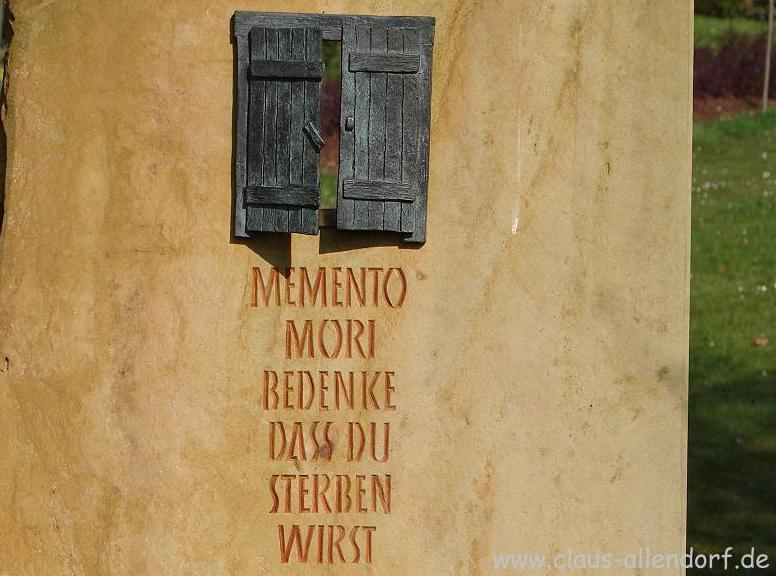 MEMENTO
MORI
BEDENKE
DASS DU
STERBEN
WIRST
www.claus-allendorf.de